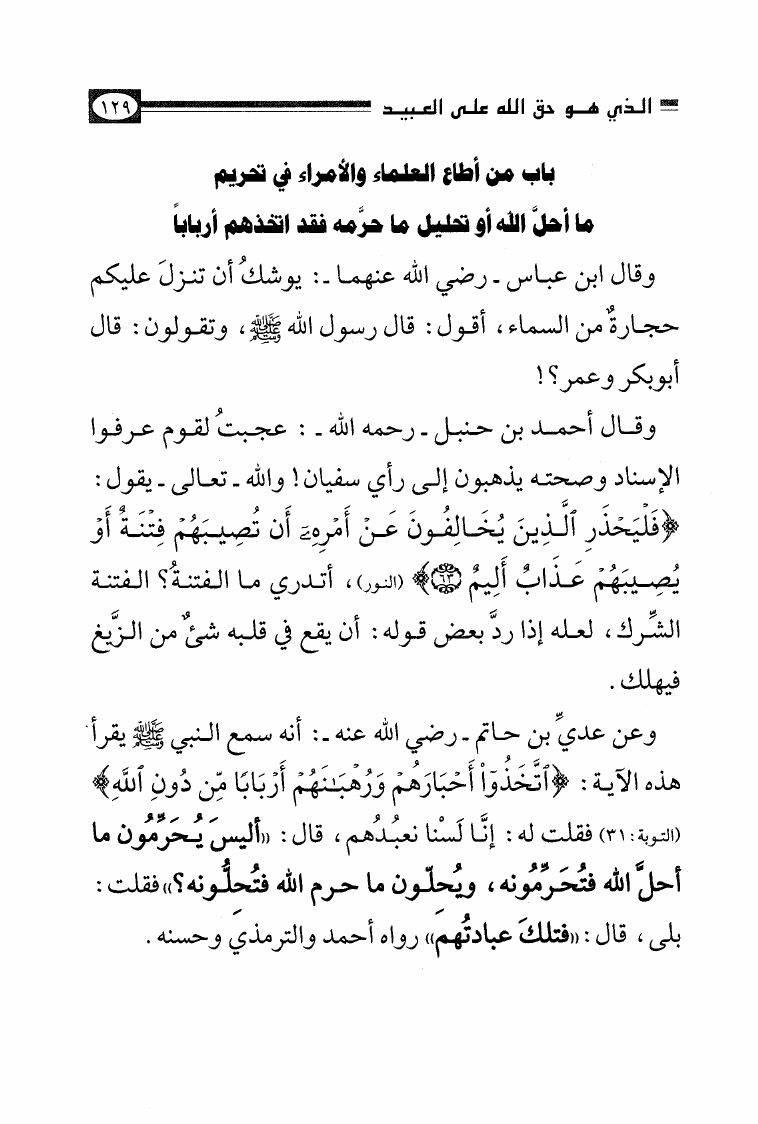 الذي هو حق الله على العبيد ١٢٩
باب من أطاع العلماء والأمراء في تحريم
ما أحلَّ الله أو تحليل ما حرَّمه فقد اتخذهم أرباباً
وقال ابن عباس ـ رضي الله عنهما ـ: يوشكُ أن تنزلَ عليكم
حجارةٌ من السماء، أقول: قال رسول الله ﷺ، وتقولون: قال
أبوبكر وعمر؟!
وقال أحمد بن حنبل ـ رحمه الله ـ : عجبتُ لقوم عرفوا
الإسناد وصحته يذهبون إلى رأي سفيان! والله ـ تعالى ـ يقول:
﴿فَلْيَحْذَرِ ٱلَّذِينَ يُخَالِفُونَ عَنْ أَمْرِهِۦٓ أَن تُصِيبَهُمْ فِتْنَةٌ أَوْ
يُصِيبَهُمْ عَذَابٌ أَلِيمٌ ٦٣﴾ (النور)، أتدري ما الفتنةُ؟ الفتنة
الشِّرك، لعله إذا ردَّ بعض قوله: أن يقع في قلبه شئٌ من الزَّيغ
فيهلك.
وعن عديِّ بن حاتم ـ رضي الله عنه ـ: أنه سمع النبي ﷺ يقرأ
هذه الآية: ﴿ٱتَّخَذُوٓا۟ أَحْبَارَهُمْ وَرُهْبَـٰنَهُمْ أَرْبَابًا مِّن دُونِ ٱللَّهِ﴾
(التوبة: ٣١) فقلت له: إنَّا لَسْنا نعبُدُهم، قال: «أليسَ يُحَرِّمُون ما
أحلَّ الله فتُحَرِّمُونه، ويُحِلّون ما حرم الله فتُحِلُّونه؟» فقلت:
بلى، قال: «فتلكَ عبادتُهم» رواه أحمد والترمذي وحسنه.